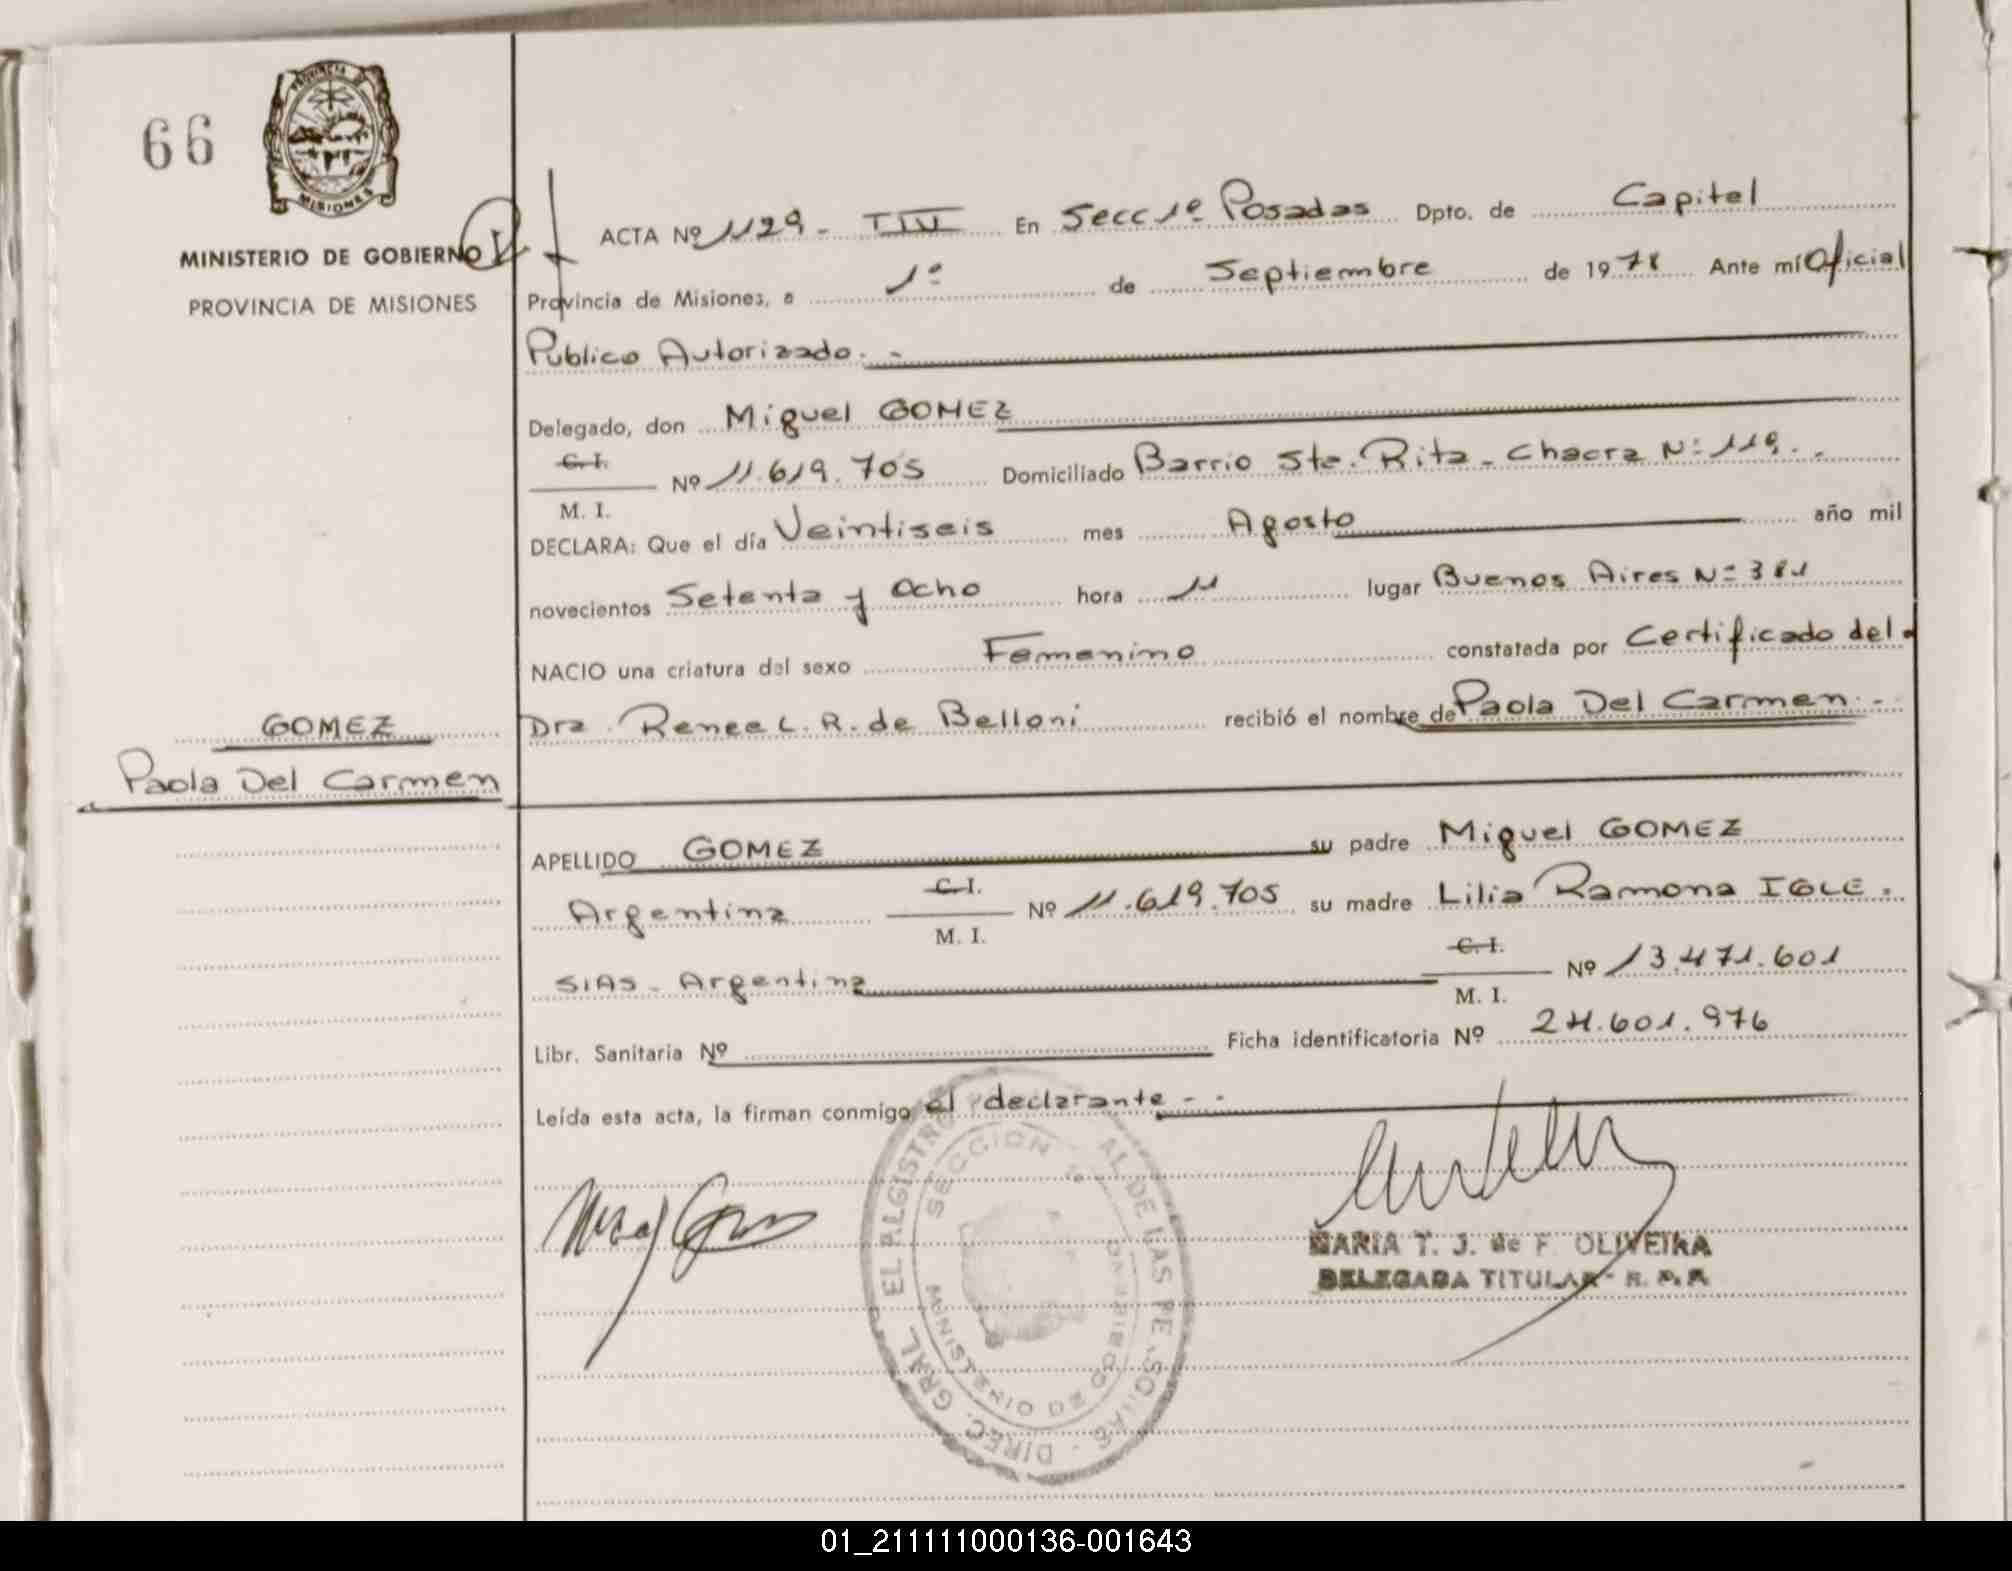 66
PROVINCIA DE
MISIONES
MINISTERIO DE GOBIERNO
PROVINCIA DE MISIONES
GOMEZ
Paola Del Carmen
ACTA Nº 1129 - TIV En Secc 1º Posadas Dpto. de Capital
Provincia de Misiones, a 1º de Septiembre de 1978 Ante mí Oficial
Publico Autorizado. -
Delegado, don Miguel GOMEZ
C. I.
M. I.
Nº 11.619.705 Domiciliado Barrio Sta. Rita - Chacra Nº 119. -
DECLARA: Que el día Veintiseis mes Agosto año mil
novecientos Setenta y Ocho hora 11 lugar Buenos Aires Nº 381
NACIO una criatura del sexo Femenino constatada por Certificado del
Dra. Renee L. R. de Belloni recibió el nombre de Paola Del Carmen. -
APELLIDO GOMEZ su padre Miguel GOMEZ
Argentina C. I. M. I. Nº 11.619.705 su madre Lilia Ramona IGLE.
SIAS - Argentina C. I. M. I. Nº 13.471.601
Libr. Sanitaria Nº Ficha identificatoria Nº 24.601.976
Leída esta acta, la firman conmigo el declarante - .
DIREC. GRAL. DEL REGISTRO AL DE LAS PERSONAS -
SECCION
MINISTERIO DE GOBIERNO
MARIA T. J. de F. OLIVEIRA
DELEGADA TITULAR - R. P. P.
01_211111000136-001643